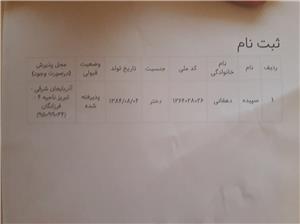 ثبت نام
ردیف نام نام خانوادگی کد ملی جنسیت تاریخ تولد وضعیت قبولی محل پذیرش (درصورت وجود)
۱ سپیده دهقانی ۱۳۶۴۰۲۸۰۲۶ دختر ۱۳۸۴/۰۸/۰۴ پذیرفته شده آذربایجان شرقی - تبریز ناحیه ۴ - فرزانگان